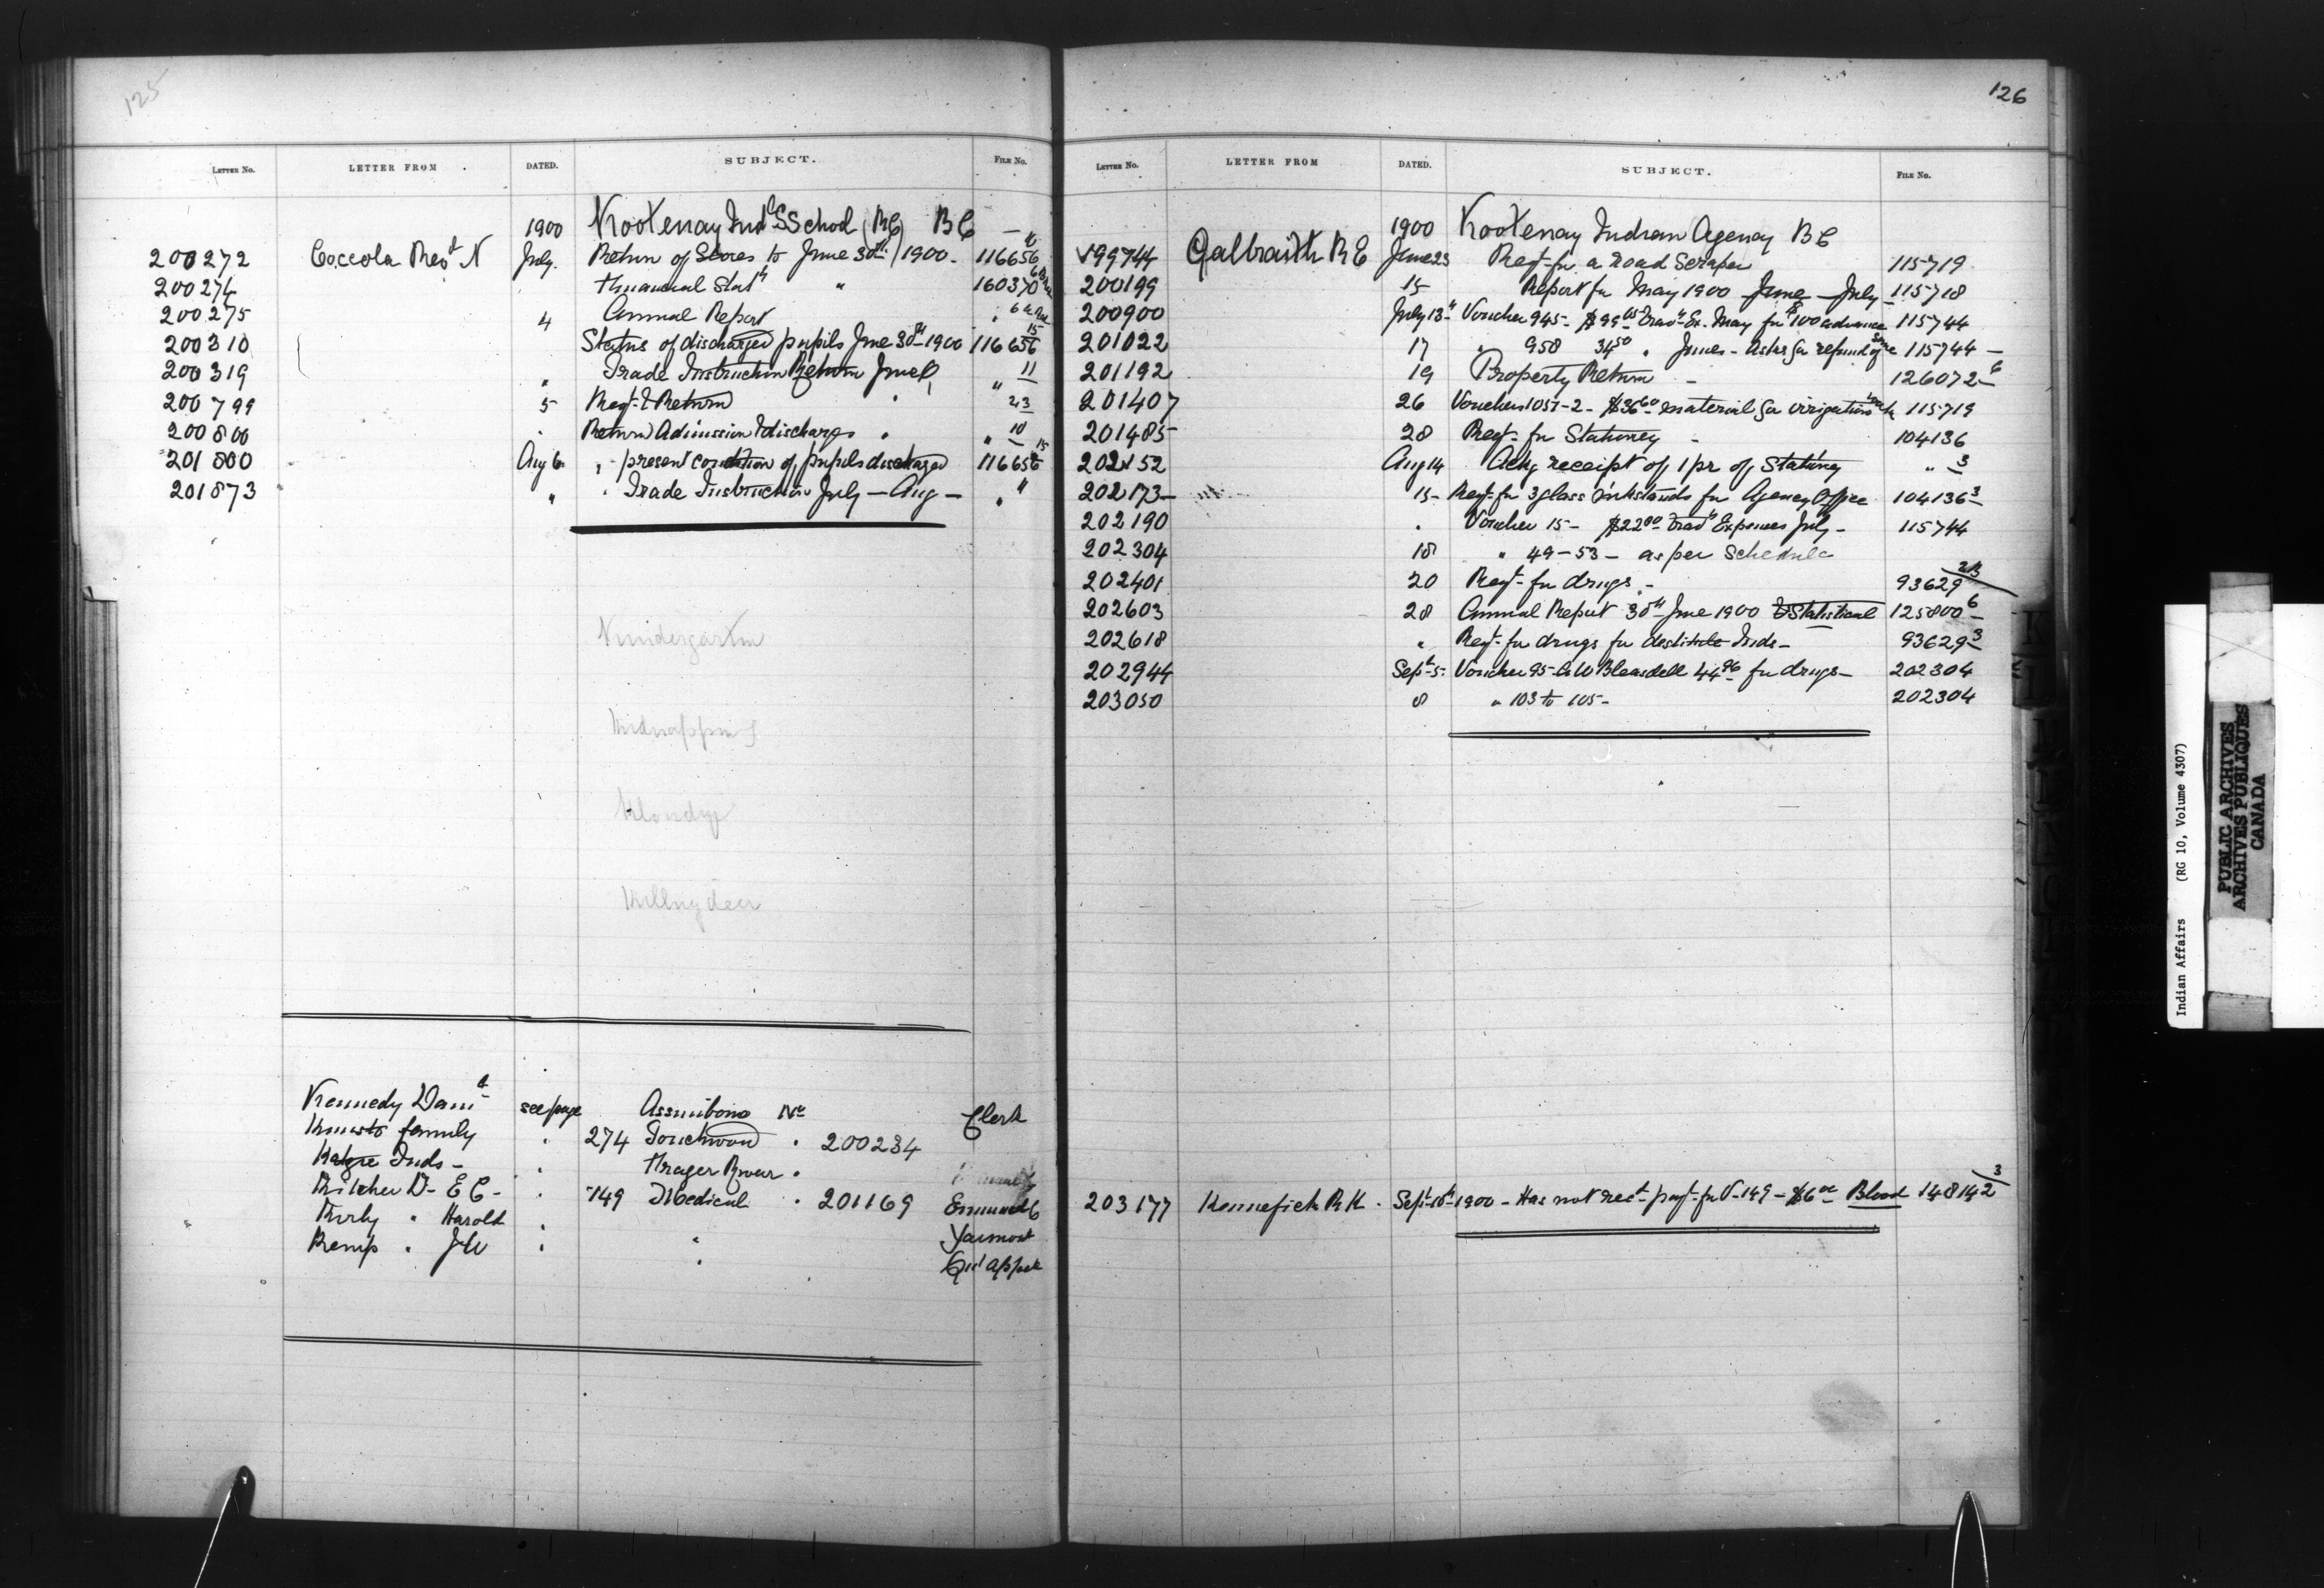 125
LETTER NO. LETTER FROM DATED. SUBJECT. FILE NO.
1900 Kootenay Indl School (RC) BC
200272 Coccola Revd N July Return of Stores to June 30th 1900 - 116656
200274 Financial Statt " 160370
200275 4 Annual Report "
200310 Status of discharged pupils June 30th 1900 116656 15
200319 " Trade Instruction Return June " 11
200799 5 Reqt & Return " 23
200800 Return Admission & discharges " " 10
201800 Aug 6 " present condition of pupils discharged 116656 15
201873 " " Trade Instruction July - Aug - " "
Kindergarten
Kidnapping
Klondyke
Killing deer
Kennedy Danl see page Assiniboia No Clerk
family " 274 Touchwood " 200234
Inds - " Fraser River "
Kitchen Dr E C - " 149 Medical " 201169 Emmund C
Kirby " Harold " "
Kemp " J W " " Qu'Appelle
126
LETTER NO. LETTER FROM DATED. SUBJECT. FILE NO.
1900 Kootenay Indian Agency BC
199744 Galbraith R E June 23 Reqt - for a Road Scraper 115719
200199 15 Report for May 1900 June - July 115718
200900 July 13th Voucher 945 - $99 05 Travg Ex. May for $100 advance 115744
201022 17 " 958 34 50 " June - Asks for refund of same 115744 -
201192 19 Property Return - 126072 - 6
201407 26 Vouchers 1051-2 - $36 60 material for irrigation 115719
201485 28 Reqt - for Stationery - 104136
202152 Aug 14 Ackg receipt of 1 pr of Stationery " 3
202173 - 15 - Reqt - for 3 glass inkstands for Agency Office 104136 3
202190 " Voucher 15 - $22 00 Travg Expenses July - 115744
202304 18 " 49-53 - as per Schedule
202401 20 Reqt - for drugs - 93629 2/3
202603 28 Annual Report 30th June 1900 & Statistical 125800 6
202618 " Reqt - for drugs for destitute Inds - 93629 3
202944 Sept 5 - Voucher 95 - G W Bleasdell 44 96 for drugs - 202304
203050 8 " 103 to 105 - 202304
203177 Kennefick R K - Sept 10th 1900 - Has not recd payt - for V - 149 - $6 00 Blood 148142 3
Indian Affairs (RG 10, Volume 4307)
PUBLIC ARCHIVES
ARCHIVES PUBLIQUES
CANADA